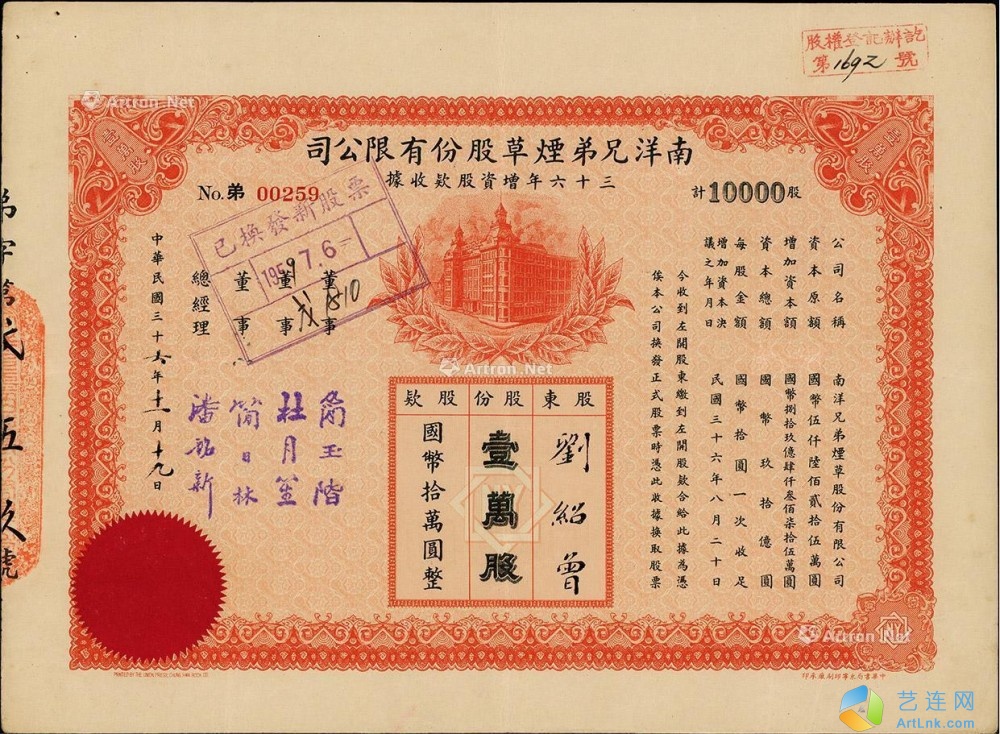 股權登記辦訖
第1692號
Artron.Net
壹萬股
壹萬股
南洋兄弟煙草股份有限公司
三十六年增資股款收據
No.弟 00259
計10000股
公司名稱 南洋兄弟煙草股份有限公司
資本原額 國幣伍仟陸佰貳拾伍萬圓
增加資本額 國幣捌拾玖億肆仟叁佰柒拾伍萬圓
資本總額 國幣玖拾億圓
每股金額 國幣拾圓一次收足
增加資本決議之年月日 民國三十六年八月二十日
今收到左開股東繳到左開股款合給此據為憑
俟本公司換發正式股票時憑此收據換取股票
已換發新股票
1959 7.6
股東 劉紹曾
股份 壹萬股
股款 國幣拾萬圓整
董事 簡玉階
董事 杜月笙
董事 簡日林
總經理 潘銘新
中華民國三十六年十二月十九日
Artron.Net
號
Artron.Net
PRINTED BY THE UNION PRESS CHUNG HWA BOOK CO.
艺连网
ArtLnk.com